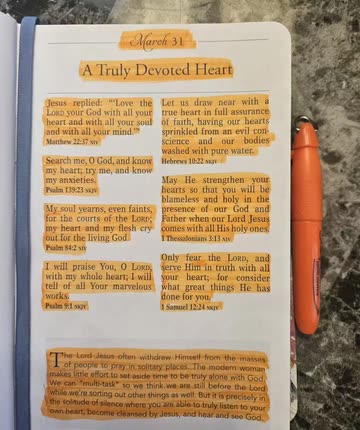 March 31
A Truly Devoted Heart
Jesus replied: "'Love the
LORD your God with all your
heart and with all your soul
and with all your mind.'"
Matthew 22:37 NIV
Search me, O God, and know
my heart; try me, and know
my anxieties.
Psalm 139:23 NKJV
My soul yearns, even faints,
for the courts of the LORD;
my heart and my flesh cry
out for the living God.
Psalm 84:2 NIV
I will praise You, O LORD,
with my whole heart; I will
tell of all Your marvelous
works.
Psalm 9:1 NKJV
Let us draw near with a
true heart in full assurance
of faith, having our hearts
sprinkled from an evil con-
science and our bodies
washed with pure water.
Hebrews 10:22 NKJV
May He strengthen your
hearts so that you will be
blameless and holy in the
presence of our God and
Father when our Lord Jesus
comes with all His holy ones.
1 Thessalonians 3:13 NIV
Only fear the LORD, and
serve Him in truth with all
your heart; for consider
what great things He has
done for you.
1 Samuel 12:24 NKJV
The Lord Jesus often withdrew Himself from the masses
of people to pray in solitary places. The modern woman
makes little effort to set aside time to be truly alone with God.
We can "multi-task" so we think we are still before the Lord
while we're sorting out other things as well. But it is precisely in
the solitude of silence where you are able to truly listen to your
own heart, become cleansed by Jesus, and hear and see God.